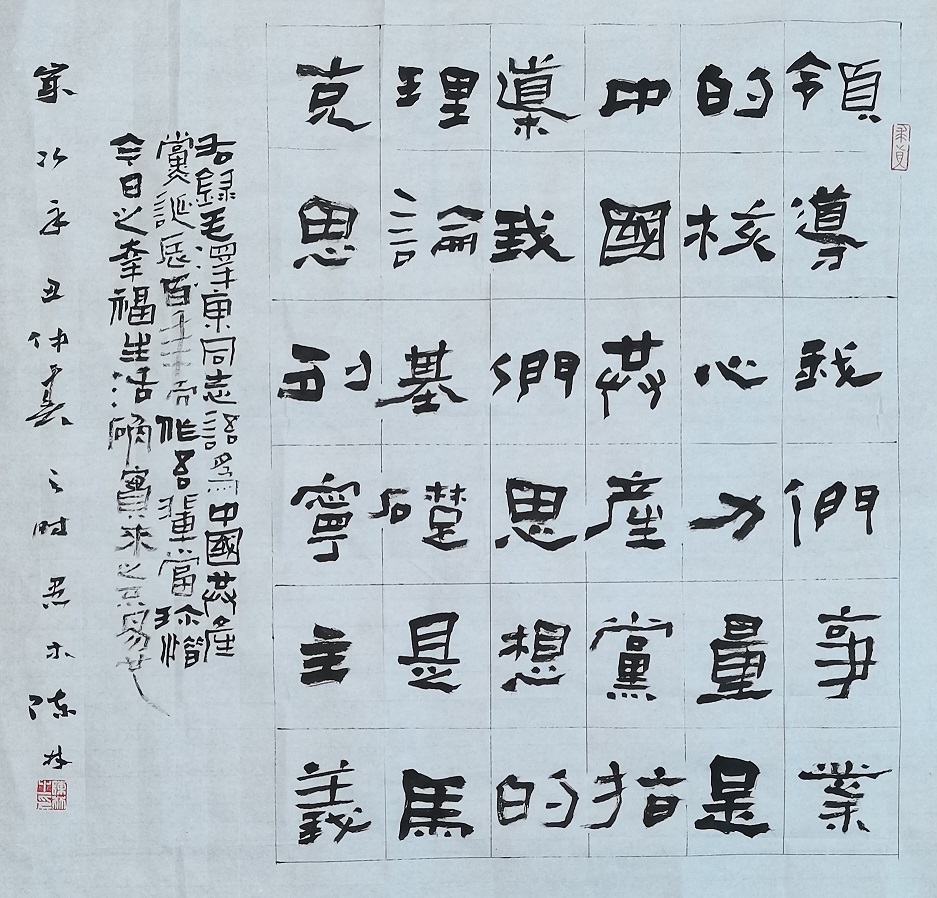 領導我們事業
的核心力量是
中國共產黨指
導我們思想的
理論基礎是馬
克思列寧主義
右録毛澤東同志語爲中國共產
黨誕辰百年而作吾輩當珍惜
今日之幸福生活确實來之不易也
歲次辛丑仲夏之時愚木陈林